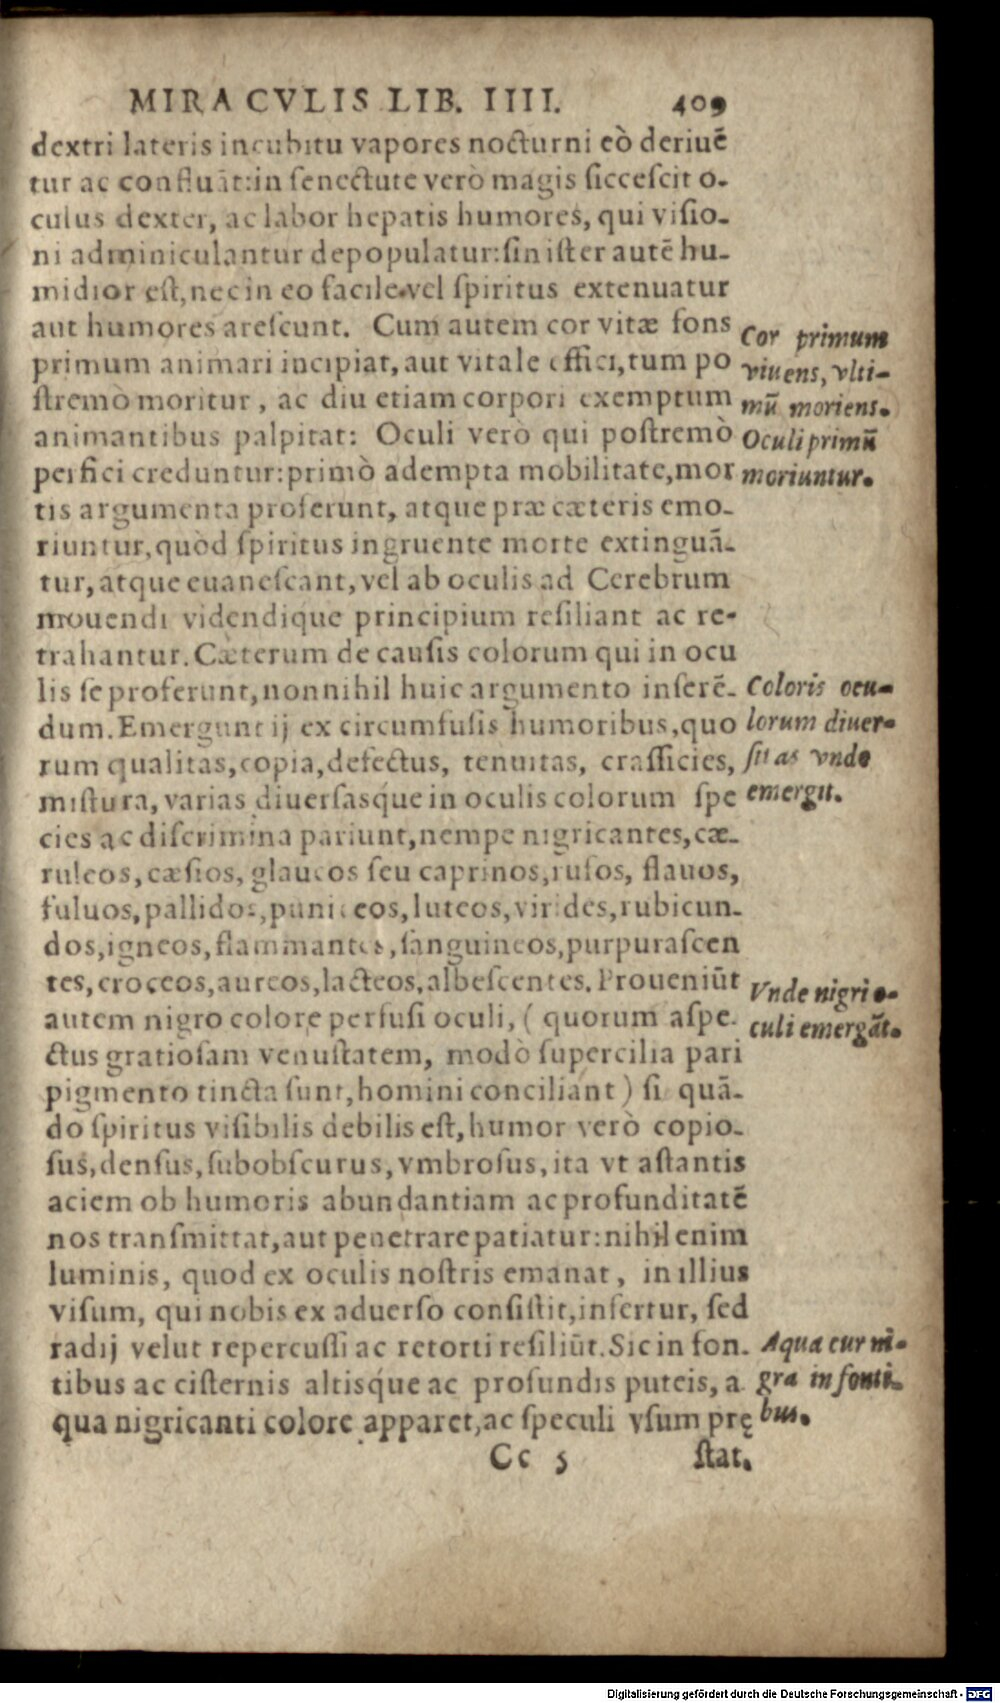 MIRACVLIS LIB. IIII. 409
dextri lateris incubitu vapores nocturni eò deriuẽ
tur ac confluãt:in ſenectute verò magis ſicceſcit o-
culus dexter, ac labor hepatis humores, qui viſio-
ni adminiculantur depopulatur:ſiniſter autẽ hu-
midior eſt,nec in eo facile vel ſpiritus extenuatur
aut humores areſcunt. Cum autem cor vitæ fons
primum animari incipiat,aut vitale effici,tum po
ſtremò moritur, ac diu etiam corpori exemptum
animantibus palpitat: Oculi verò qui poſtremò
perfici creduntur:primò adempta mobilitate,mor
tis argumenta proferunt, atque præ cæteris emo-
riuntur,quòd ſpiritus ingruente morte extinguã-
tur,atque euaneſcant,vel ab oculis ad Cerebrum
mouendi videndique principium reſiliant ac re-
trahantur. Cæterum de cauſis colorum qui in ocu
lis ſe proferunt,nonnihil huic argumento inferẽ-
dum. Emergunt ij ex circumfuſis humoribus,quo
rum qualitas,copia,defectus, tenuitas, craſſicies,
miſtura, varias diuerſasq́ue in oculis colorum ſpe
cies ac diſcrimina pariunt,nempe nigricantes,cæ-
ruleos,cæſios, glaucos ſeu caprinos,rufos, flauos,
fuluos,pallidos,puniceos,luteos,virides,rubicun-
dos,igneos,flammantes,ſanguineos,purpuraſcen
tes,croceos,aureos,lacteos,albeſcentes. Proueniũt
autem nigro colore perfuſi oculi, ( quorum aſpe-
ctus gratioſam venuſtatem, modò ſupercilia pari
pigmento tincta ſunt,homini conciliant ) ſi quã-
do ſpiritus viſibilis debilis eſt,humor verò copio-
ſus,denſus,ſubobſcurus,vmbroſus,ita vt aſtantis
aciem ob humoris abundantiam ac profunditatẽ
nos tranſmittat,aut penetrare patiatur:nihil enim
luminis, quod ex oculis noſtris emanat, in illius
viſum, qui nobis ex aduerſo conſiſtit,infertur, ſed
radij velut repercuſſi ac retorti reſiliũt. Sic in fon-
tibus ac ciſternis altisq́ue ac profundis puteis, a-
qua nigricanti colore apparet,ac ſpeculi vſum prę
Cc 5 ſtat.
Cor primum
viuens, vlti-
mũ moriens.
Oculi primũ
moriuntur.
Coloris ocu-
lorum diuer-
ſitas vnde
emergit.
Vnde nigri o-
culi emergãt.
Aqua cur ni-
gra in fonti-
bus.
Digitalisierung gefördert durch die Deutsche Forschungsgemeinschaft - DFG